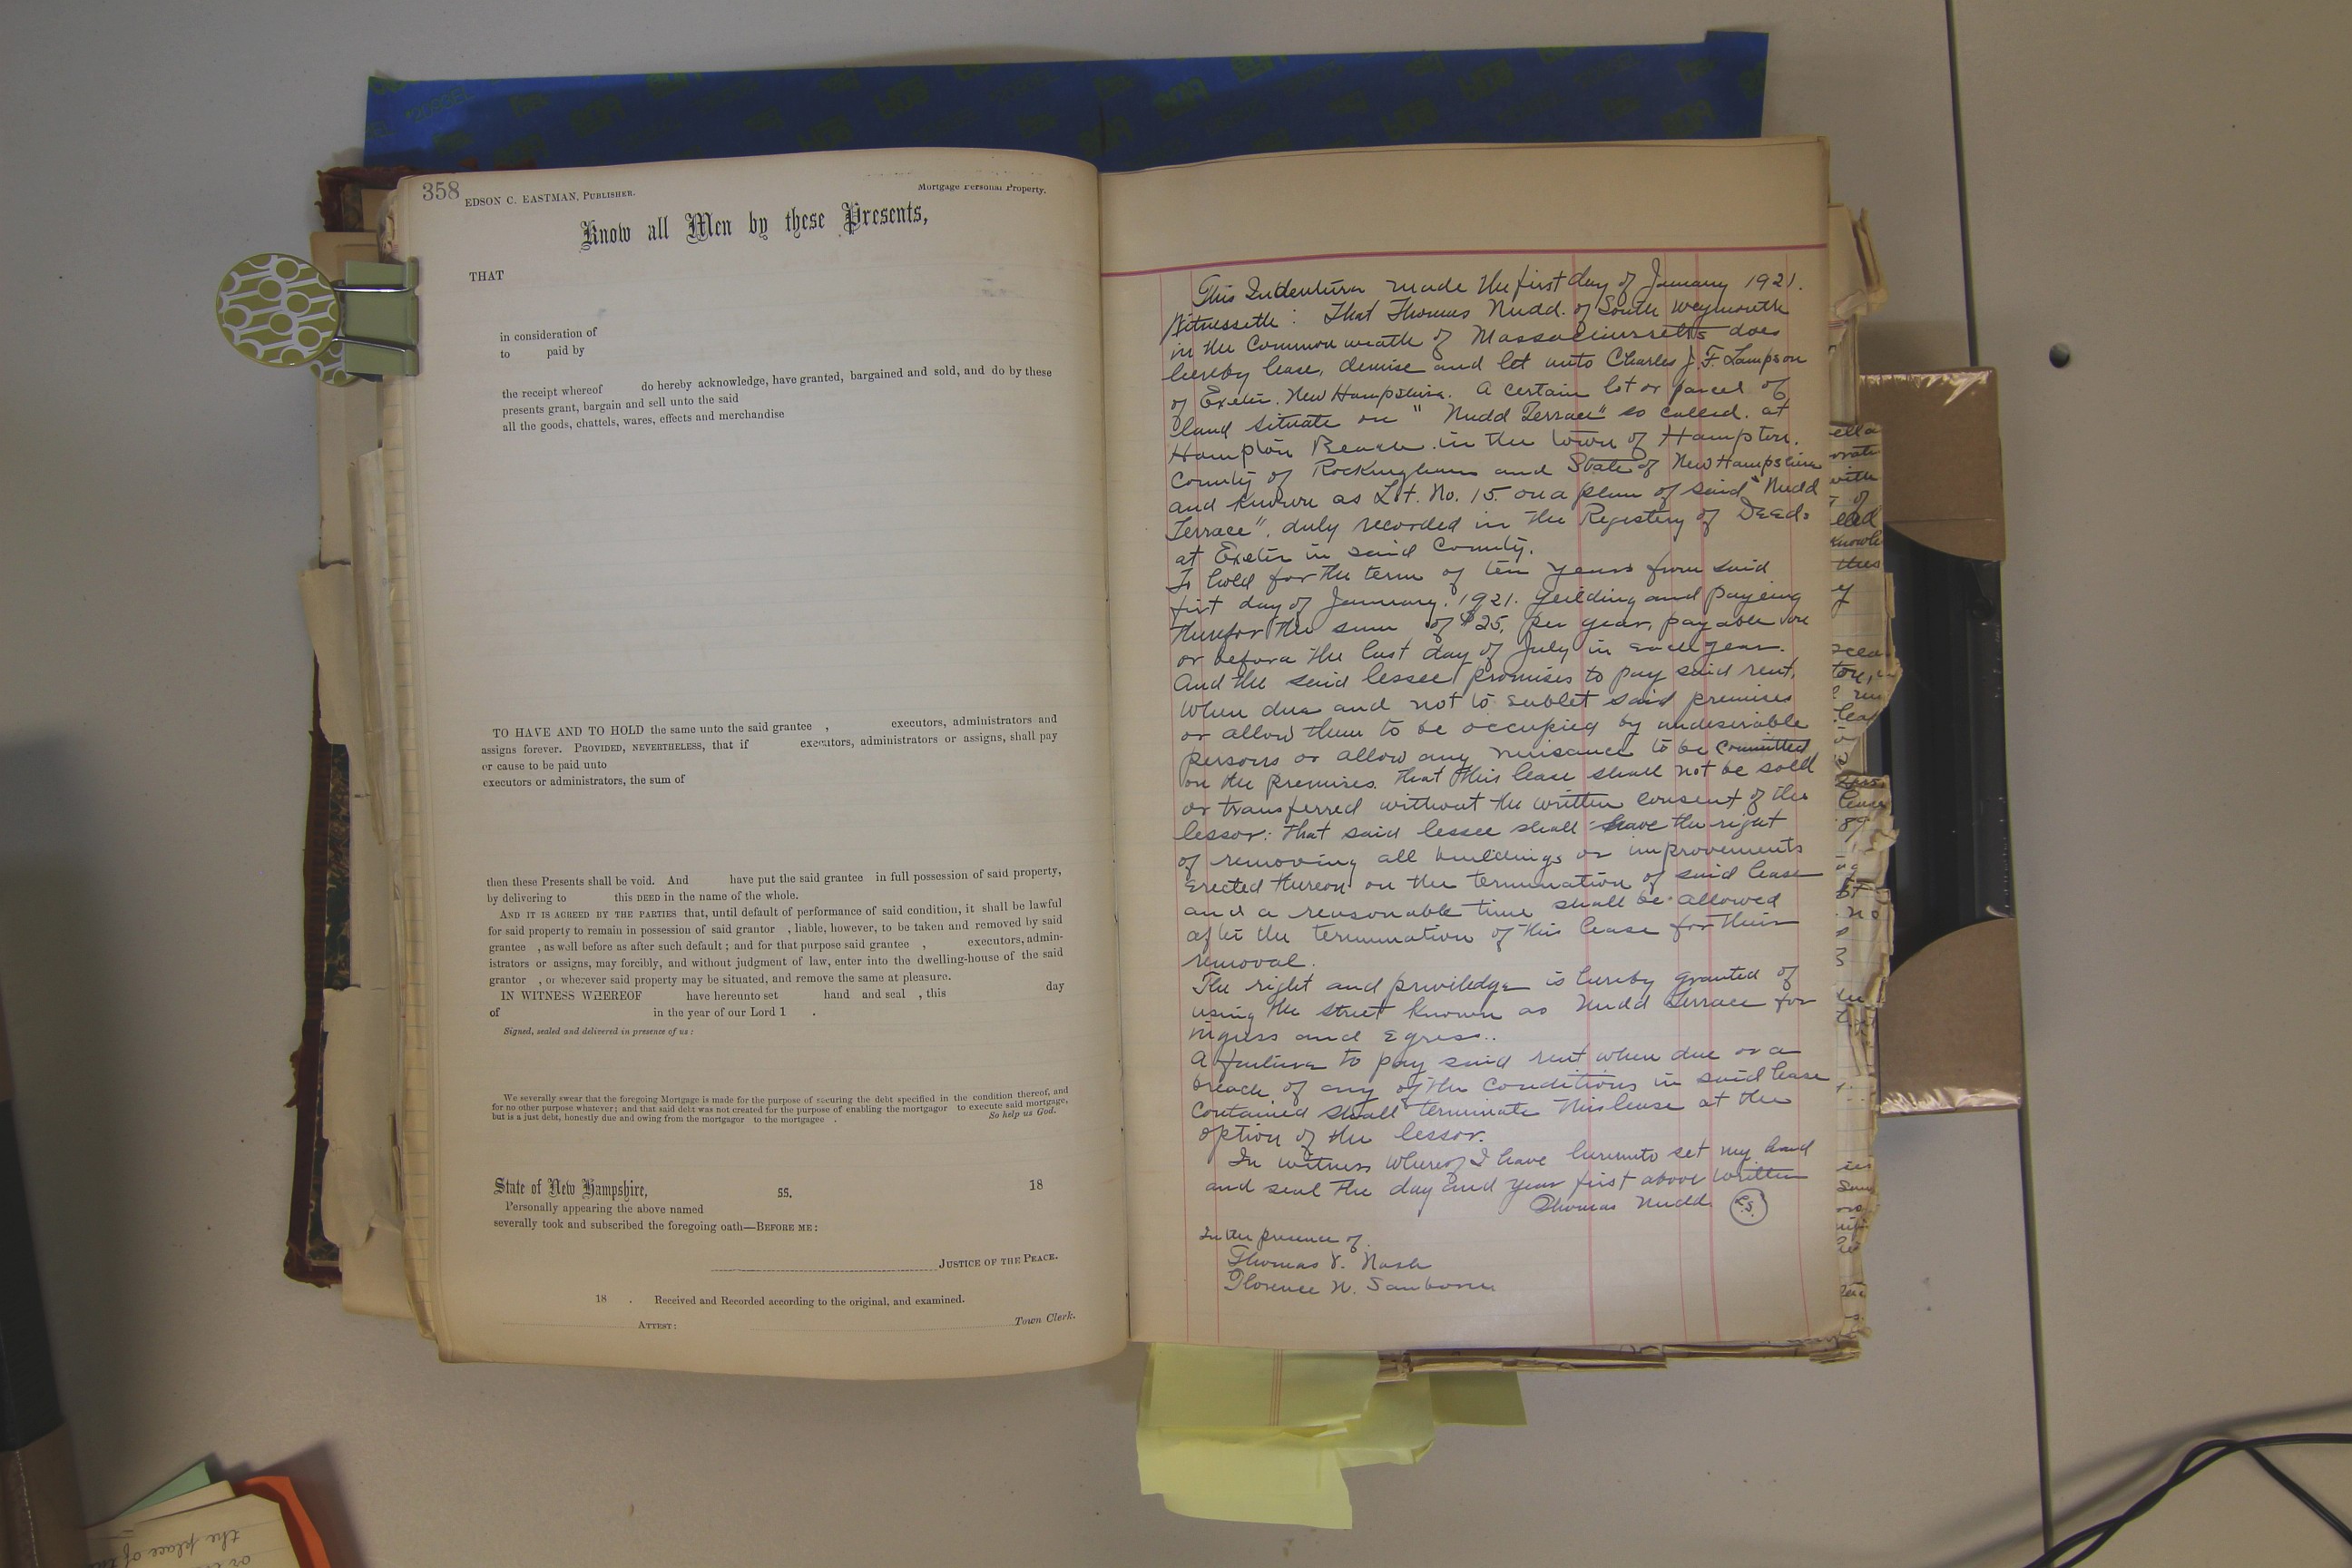 358
EDSON C. EASTMAN, PUBLISHER.
Mortgage Personal Property.
Know all Men by these Presents,
THAT
in consideration of
to paid by
the receipt whereof do hereby acknowledge, have granted, bargained and sold, and do by these
presents grant, bargain and sell unto the said
all the goods, chattels, wares, effects and merchandise
TO HAVE AND TO HOLD the same unto the said grantee , executors, administrators and
assigns forever. PROVIDED, NEVERTHELESS, that if executors, administrators or assigns, shall pay
or cause to be paid unto
executors or administrators, the sum of
then these Presents shall be void. And have put the said grantee in full possession of said property,
by delivering to this DEED in the name of the whole.
AND IT IS AGREED BY THE PARTIES that, until default of performance of said condition, it shall be lawful
for said property to remain in possession of said grantor , liable, however, to be taken and removed by said
grantee , as well before as after such default ; and for that purpose said grantee , executors, admin-
istrators or assigns, may forcibly, and without judgment of law, enter into the dwelling-house of the said
grantor , or wherever said property may be situated, and remove the same at pleasure.
IN WITNESS WHEREOF have hereunto set hand and seal , this day
of in the year of our Lord 1 .
Signed, sealed and delivered in presence of us :
We severally swear that the foregoing Mortgage is made for the purpose of securing the debt specified in the condition thereof, and
for no other purpose whatever ; and that said debt was not created for the purpose of enabling the mortgagor to execute said mortgage,
but is a just debt, honestly due and owing from the mortgagor to the mortgagee . So help us God.
State of New Hampshire, ss. 18
Personally appearing the above named
severally took and subscribed the foregoing oath—BEFORE ME :
JUSTICE OF THE PEACE.
18 . Received and Recorded according to the original, and examined.
ATTEST : Town Clerk.
This Indentura made the first day of January 1921.
Witnesseth : That Thomas Nudd. of South Weymouth
in the Common wealth of Massachussetts does
hereby lease, demise and let unto Charles J. F. Lampson
of Exeter. New Hampshire. A certain lot or parcel of
land situate on " Nudd Terrace" so called. at
Hampton Beach. in the town of Hampton.
County of Rockingham and State of New Hampshire
and known as Lot. No. 15. on a plan of said "Nudd
Terrace", duly recorded in the Registery of Deeds
at Exeter in said County.
To hold for the term of ten years from said
first day of January. 1921. Yeilding and payeing
therefor the sum of $25. per year, payable on
or before the last day of July in each year.
And the said lessee promises to pay said rent,
when due and not to sublet said premises
or allow them to be occupied by undesirable
persons or allow any nuisance to be committed
on the premises. that this lease shall not be sold
or transferred without the written consent of the
lessor: that said lessee shall have the right
of removing all buildings or improvements
erected thereon on the termination of said lease
and a reasonable time shall be allowed
after the termination of this lease for their
removal.
The right and priviledge is hereby granted of
using the street known as Nudd Terrace for
ingress and egress..
A failure to pay said rent when due or a
breach of any of the conditions in said lease
contained shall terminate this lease at the
option of the lessor.
In witness whereof I have hereunto set my hand
and seal the day and year first above written
Thomas Nudd. L.S.
In the presence of.
Thomas V. Nash
Florence N. Sanborn
the place of